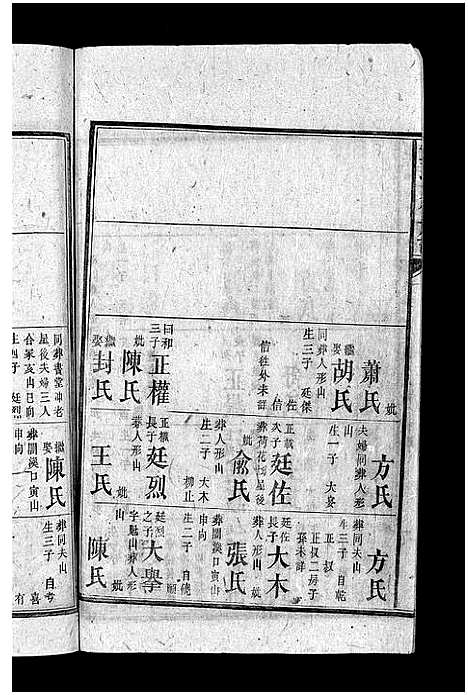 妣
蕭氏
繼娶
胡氏
同葬人形山
生三子 廷傑
佐
信
信往外未詳
曰和三子
正權
妣
陳氏
繼娶
封氏
同葬貴堂冲老
屋後夫婦三人
合冢亥山巳向
生四子 廷烈
方氏
夫婦同葬人形
山
生一子 大委
正權次子
廷佐
葬荷花 屋後
妣
俞氏
葬人形山
生二子 大木
柳止
正權長子
廷烈
葬人形山
妣
王氏
繼娶
陳氏
葬關溪口寅山
申向
方氏
葬同夫山
生三子 自乾
正叔
正叔二房子
孫未詳
廷佐長子
大木
葬人形山
妣
張氏
葬關溪口寅山
申向
生二子 自儀
順
廷烈之子
大學
字魁山葬人形
山
妣
陳氏
葬同夫山
生三子 自
喜
有